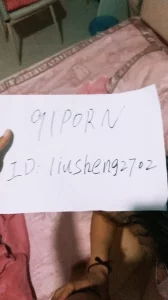 91PORN
ID: liusheng2702